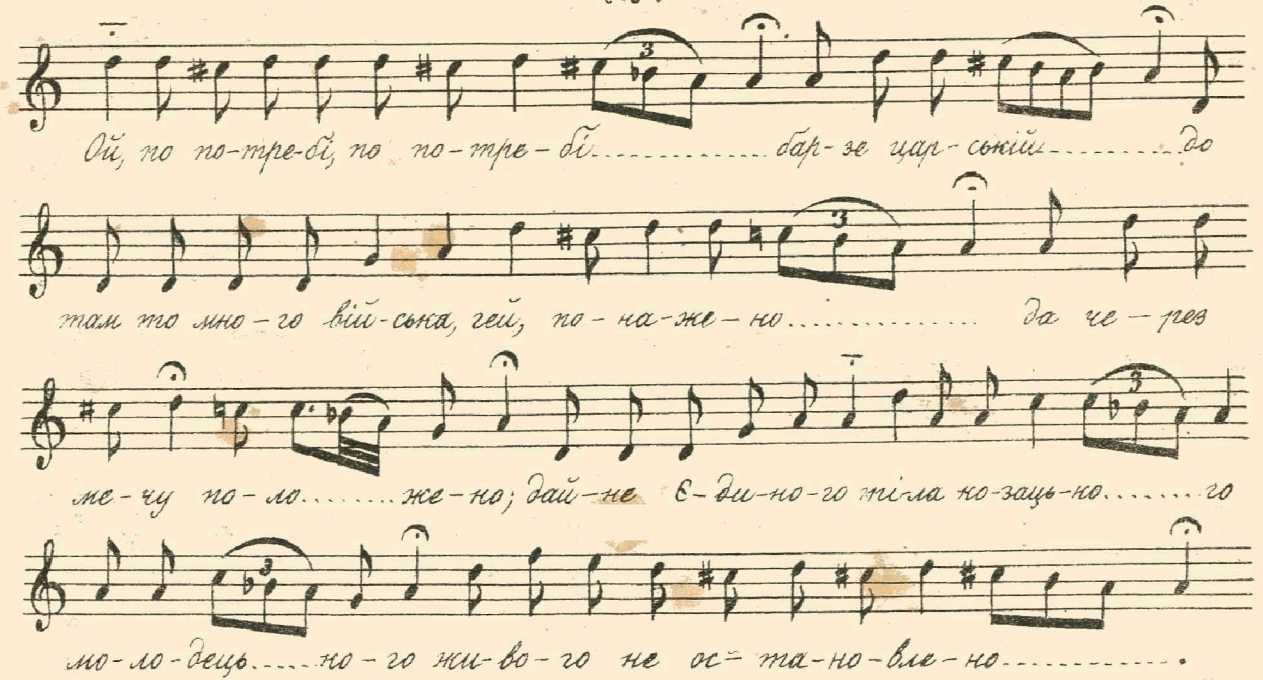 Ой, по по-тре-бі, по по-тре-бі............. бар-зе цар-ській..........до
там то мно-го вій-ська, гей, по-на-же-но............. да че-рез
ме-чу по-ло........же-но; дай-не Є-ди-но-го ті-ла ко-заць-ко.......го
мо-ло-дець.....ко-го жи-во-го не ос-та-но-вле-но.............